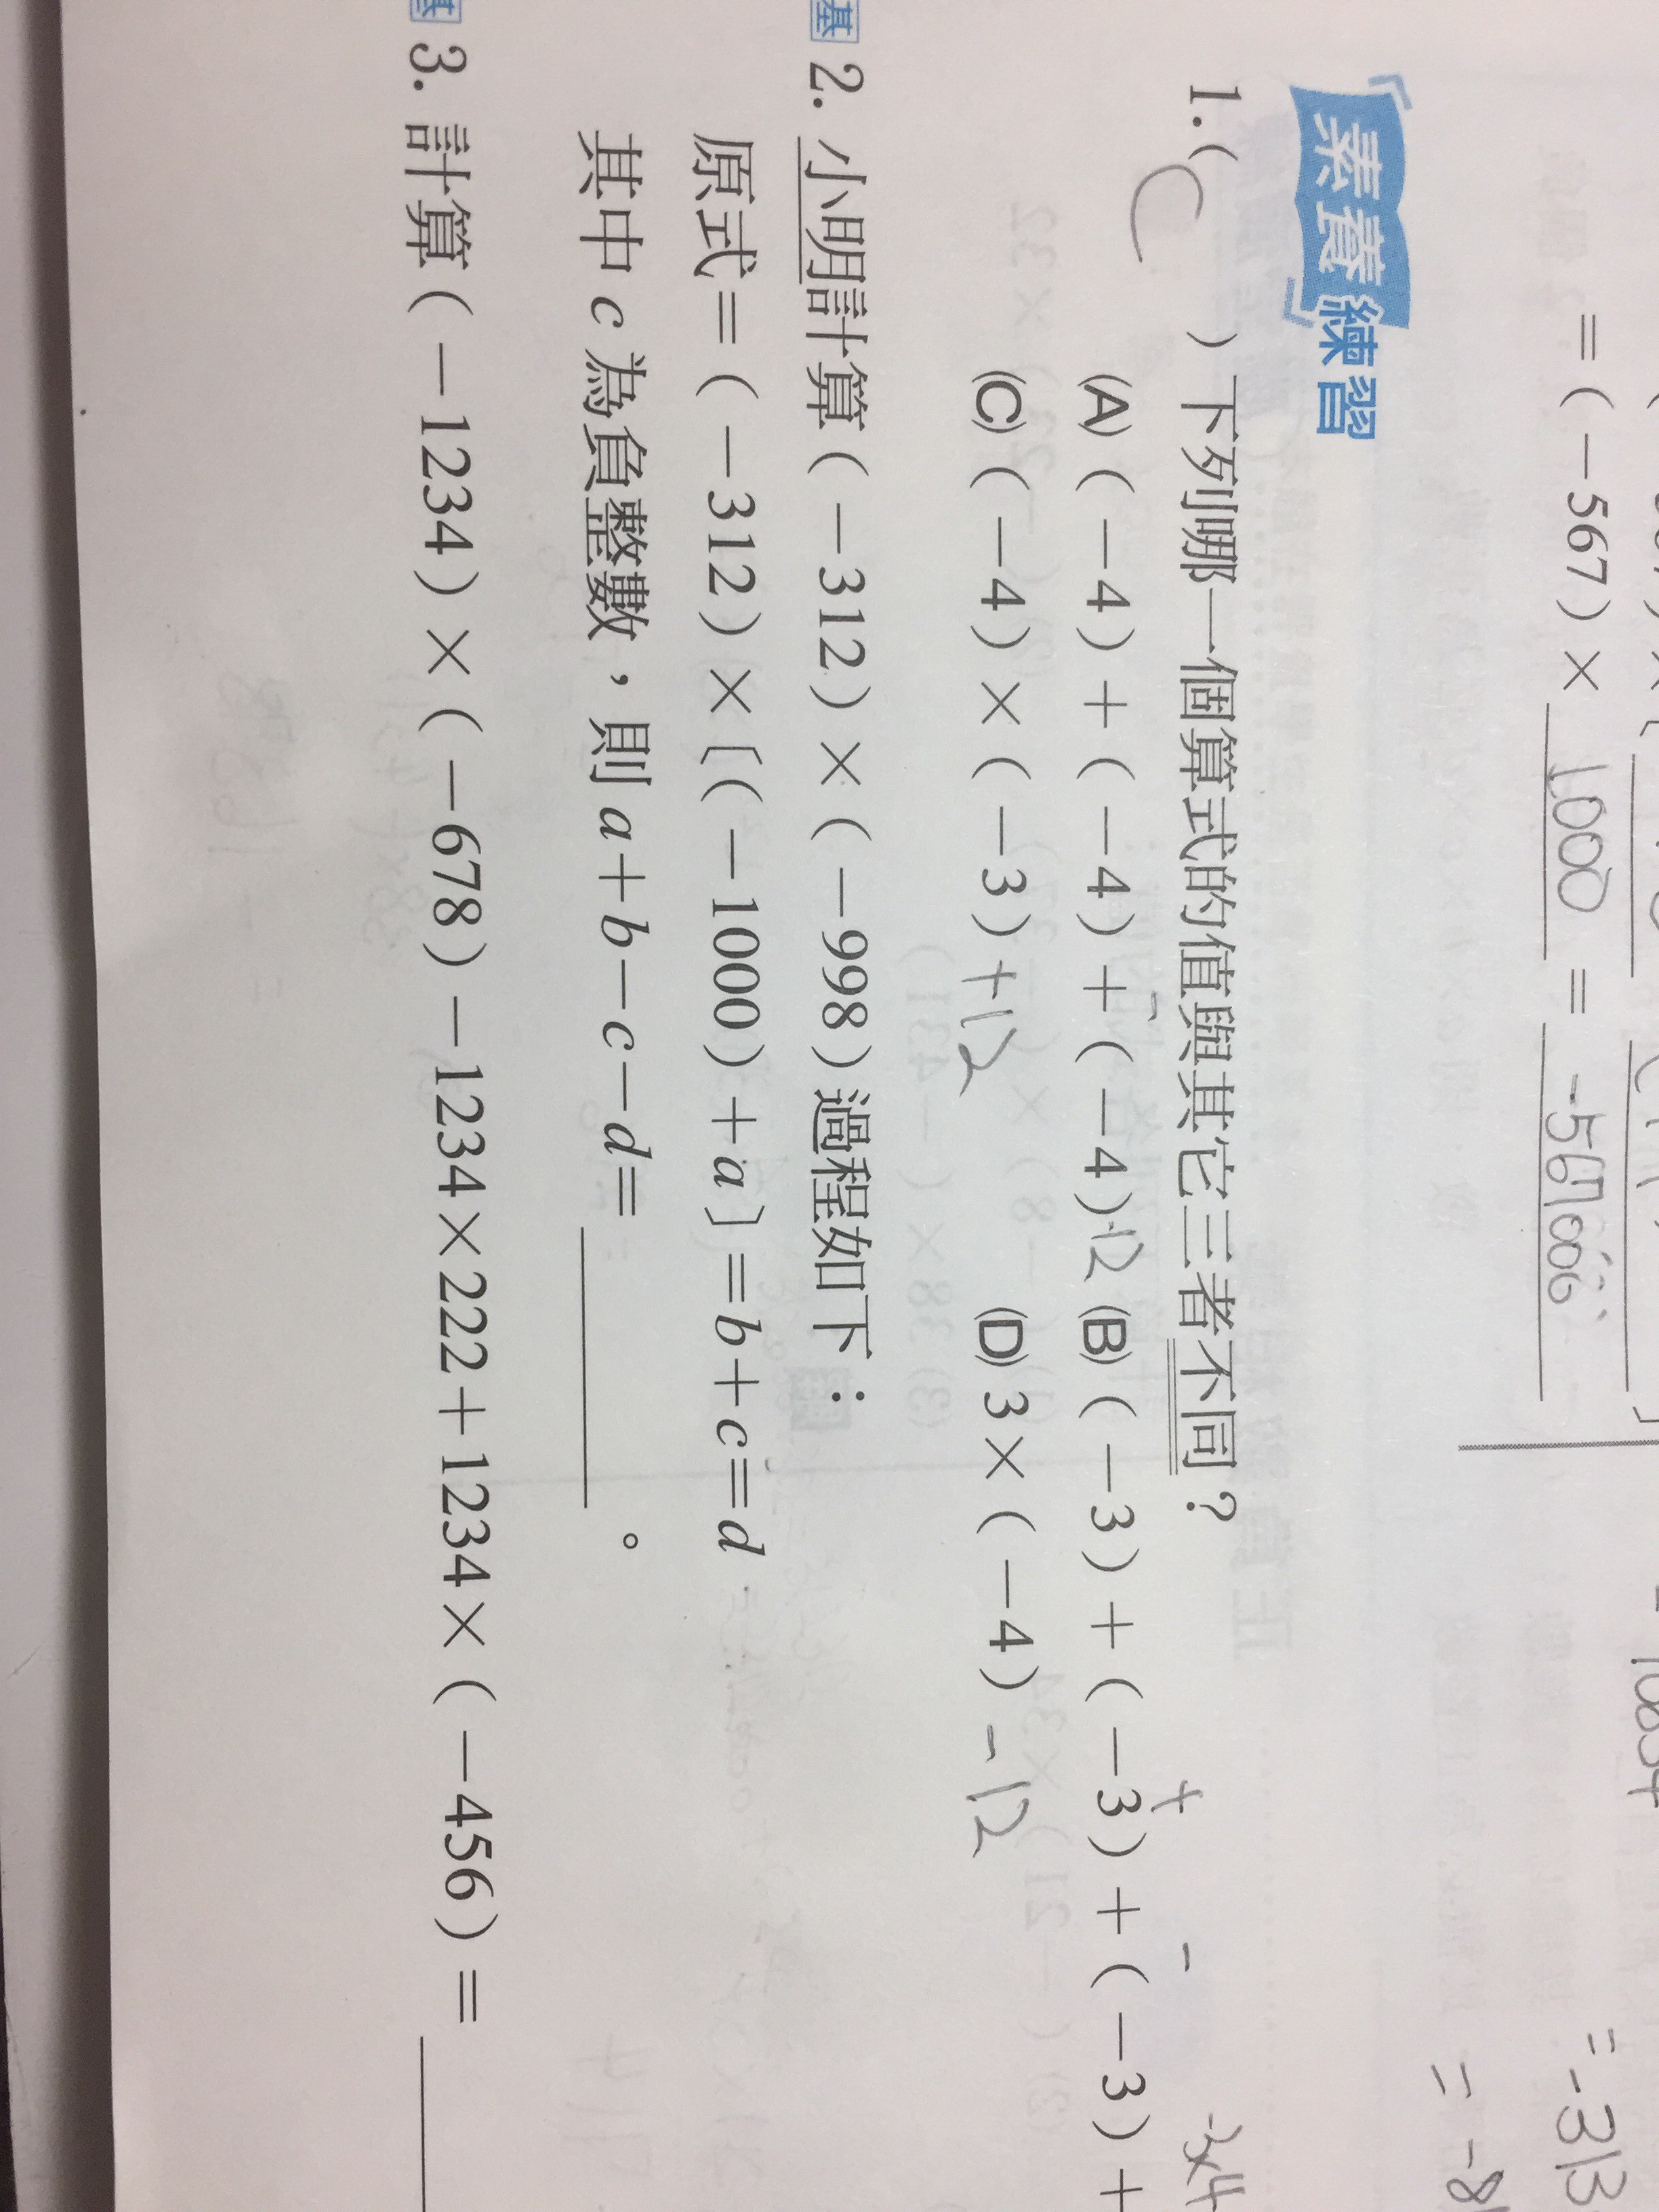 =(-567)×1000=-567000
-1034
=-313
=-8
素養練習
1.( C )下列哪一個算式的值與其它三者不同？
(A)(-4)+(-4)+(-4)-12 (B)(-3)+(-3)+(-3)+
-3×4
(C)(-4)×(-3)+12 (D)3×(-4)-12
基2.小明計算(-312)×(-998)過程如下：
原式=(-312)×〔(-1000)+a〕=b+c=d
其中c為負整數，則a+b-c-d=______。
基3.計算(-1234)×(-678)-1234×222+1234×(-456)=______